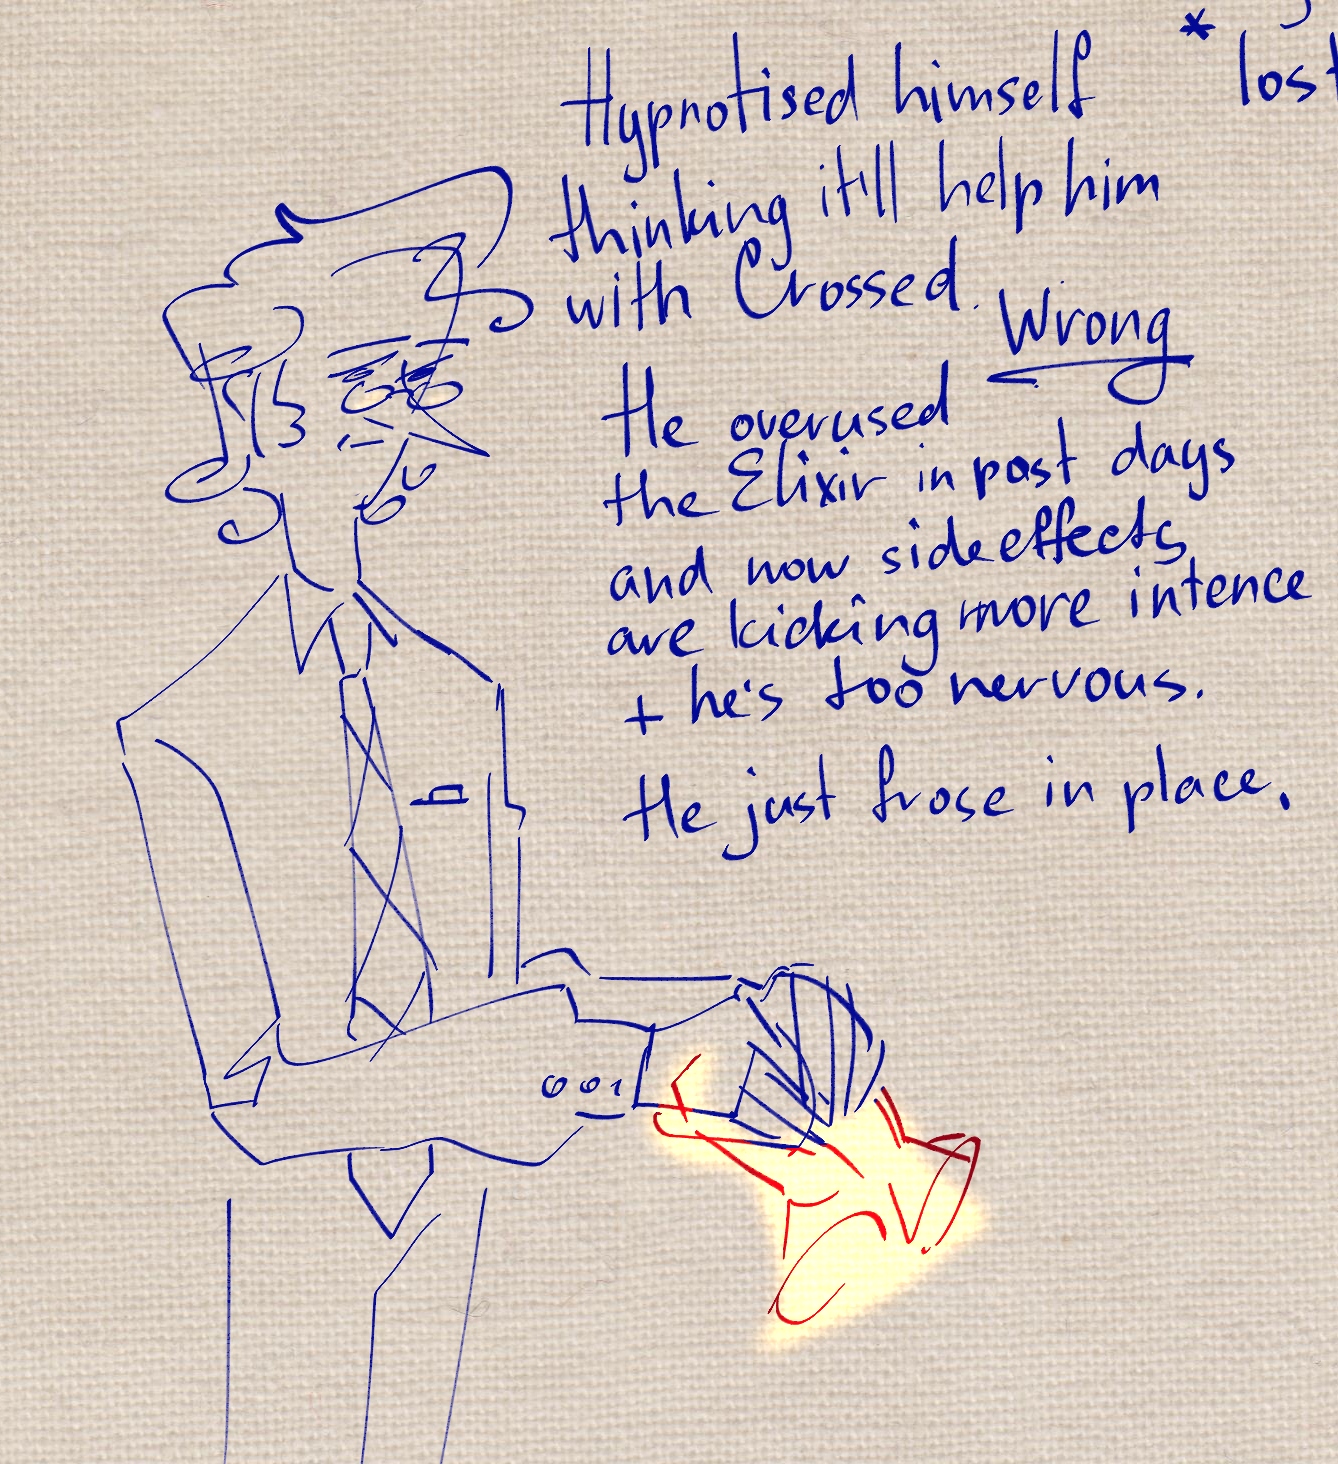 Hypnotised himself
thinking it'll help him
with Crossed.
Wrong
He overused
the Elixir in past days
and now side effects
are kicking more intence
+ he's too nervous.
He just frose in place.
* lost